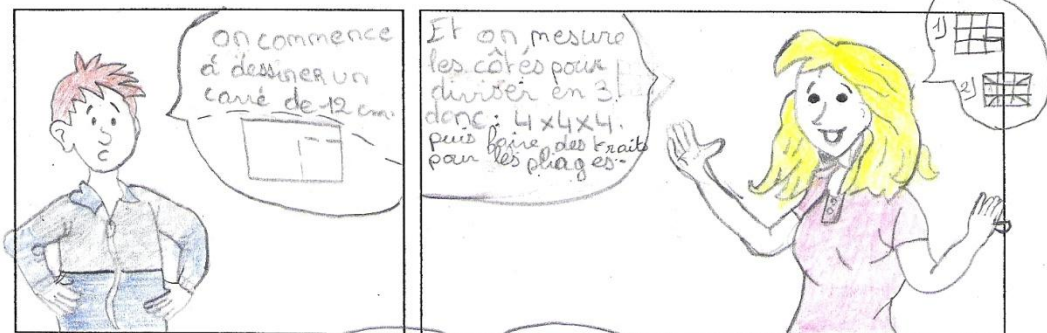 on commence
à dessiner un
carré de 12 cm.
Et on mesure
les côtés pour
diviser en 3.
donc : 4x4x4.
puis faire des traits
pour les pliages.
1)
2)